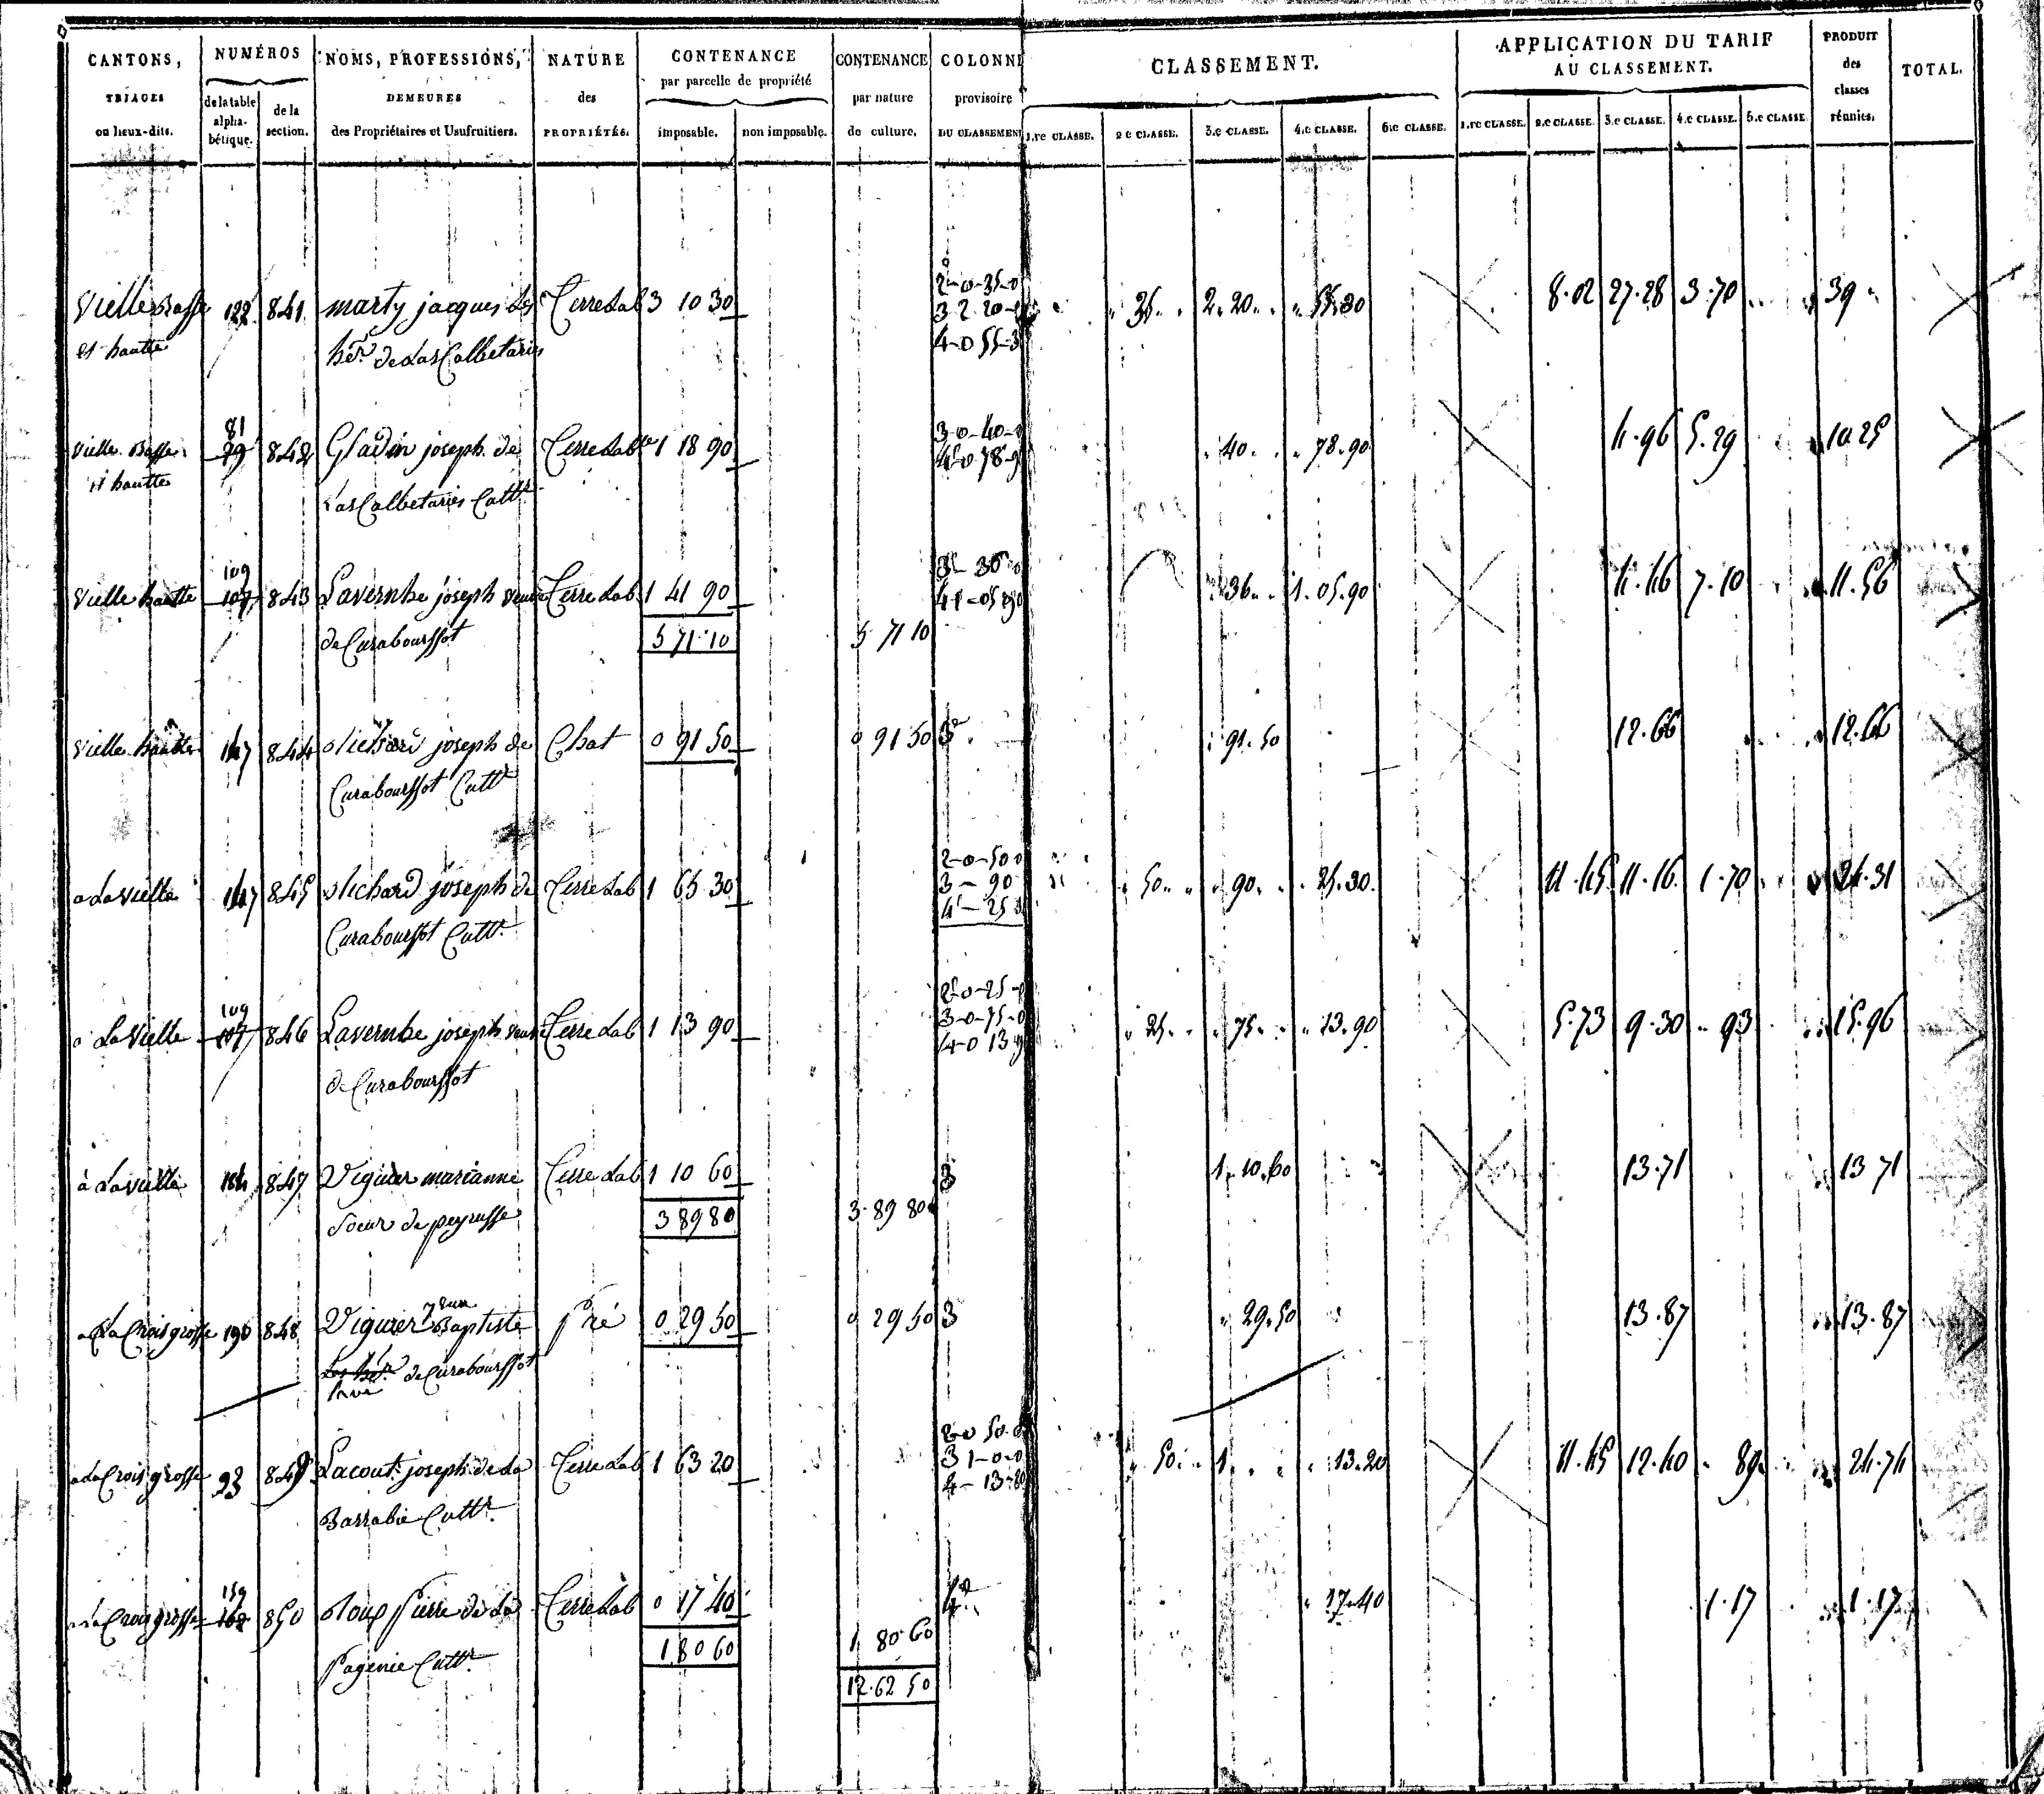 CANTONS, TRIAGES ou lieux-dits.
NUMÉROS
de la table alphabétique.
de la section.
NOMS, PROFESSIONS, DEMEURES des Propriétaires et Usufruitiers.
NATURE des PROPRIÉTÉS.
CONTENANCE par parcelle de propriété
imposable.
non imposable.
CONTENANCE par nature de culture.
COLONNE provisoire DU CLASSEMENT
CLASSEMENT.
1.re CLASSE. 2e CLASSE. 3.e CLASSE. 4.e CLASSE. 5.e CLASSE.
APPLICATION DU TARIF AU CLASSEMENT.
1.re CLASSE. 2.e CLASSE. 3.e CLASSE. 4.e CLASSE. 5.e CLASSE.
PRODUIT des classes réunies.
TOTAL.
2-0-35-0
Vielle Basse 122 841 marty jacques Les Terre Lab 3 10 30 3 2 20 " 35 " 2 " 20 " " 55.30 8.02 27.28 3.70 39 "
et hautte hér. de Las Calbetaries 4-0 55-3
81 3-0-40-0
Vielle Basse 79 842 Gladin joseph de Terre Lab 1 18 90 4-0 78-9 " 40 " " 78.90 4.96 5.29 10.25
et hautte Las Calbetaries Cultr.
109 3 - 36 0
Vielle hautte 107 843 Lavernhe joseph veuve Terre Lab 1 41 90 4 1-05 90 " 36 " 1.05.90 4.46 7.10 11.56
de Curaboursot 5 71 10 5 71 10
Vielle hautte 147 844 joseph de Chat 0 91 50 0 91 50 3e " 91.50 12.66 12.66
Curaboursot Cultr
2-0-50 0
a La Vielle 147 845 joseph de Terre Lab 1 65 30 3 - 90 " 50 " " 90 " " 25.30 11.45 11.16 1.70 24.31
Curaboursot Cultr. 4 - 25 3
109 2-0-25-0
a La Vielle 107 846 Lavernhe joseph veuve Terre Lab 1 13 90 3-0-75-0 " 25 " " 75 " " 13.90 5.73 9.30 " 93 15.96
de Curaboursot 4-0 13 9
à La Vielle 184 847 Viguier marianne Terre Lab 1 10 60 3 1.10.60 13.71 13 71
Soeur de peyrusse 3 89 80 3 89 80
a La Croix grosse 190 848 Viguier Baptiste pré 0 29 50 0 29 50 3 " 29.50 13.87 13.87
Les hér. de Curaboursot
2-0 50 0
a La Croix grosse 93 849 Lacout joseph de La Terre Lab 1 63 20 3 1-0-0 " 50 " 1 " " " 13.20 11.45 12.40 " 89 24.74
Barrabie Cultr. 4 - 13-20
159
a La Croix grosse 162 850 Pierre de La Terre Lab 0 17 40 4e " 17.40 1.17 1.17
Pagenie Cultr. 1 80 60 1 80 60
12.62 50